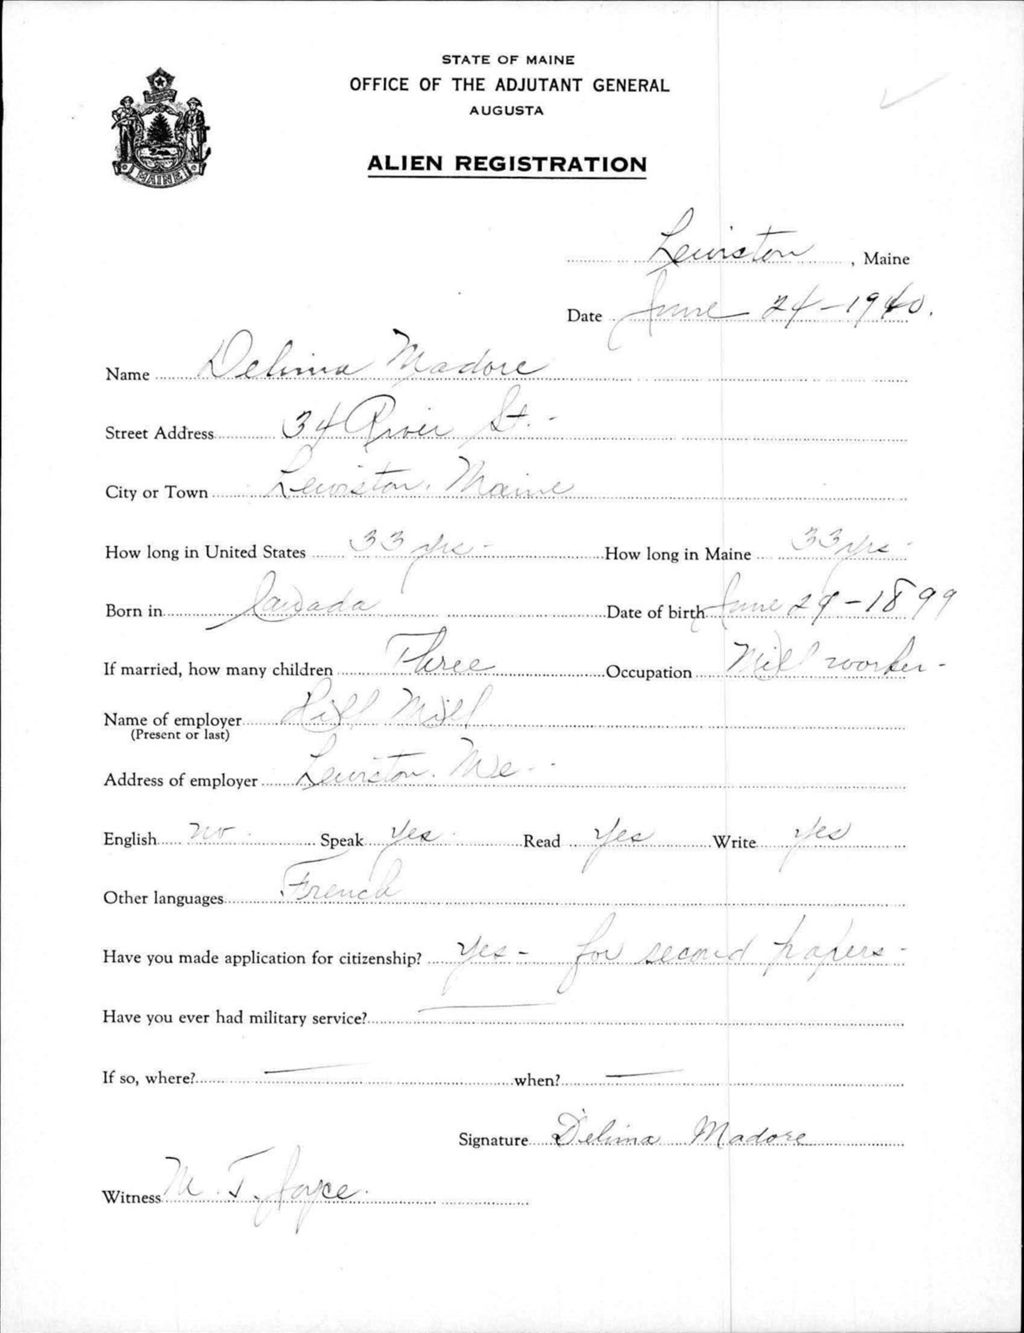 STATE OF MAINE
OFFICE OF THE ADJUTANT GENERAL
AUGUSTA
ALIEN REGISTRATION
MAINE
Lewiston, Maine
Date June 24-1940.
Name Delima Madore
Street Address 34 River St.-
City or Town Lewiston. Maine
How long in United States 33 yrs- How long in Maine 33 yrs-
Born in Canada Date of birth June 29-1899
If married, how many children Three Occupation Mill worker-
Name of employer Hill Mill
(Present or last)
Address of employer Lewiston. Me--
English no. Speak Yes. Read Yes Write Yes
Other languages French
Have you made application for citizenship? Yes- for second papers-
Have you ever had military service? —
If so, where? — when? —
Signature Delima Madore
Witness M. T. Joyce.